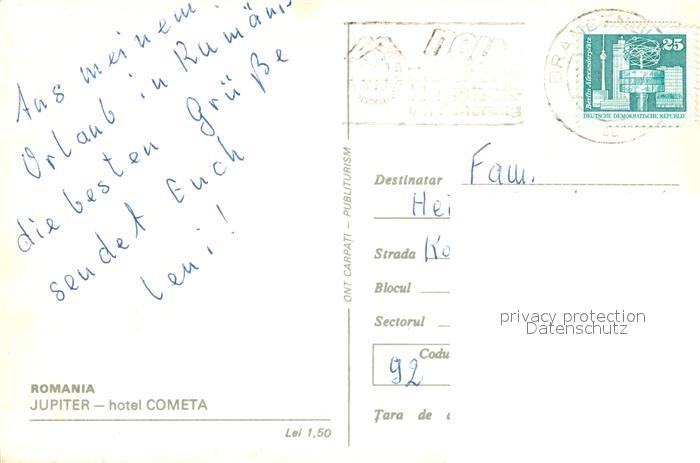 Aus meinem
Urlaub in Rumäni
die besten Grüße
sendet Euch
Leni!
ROMANIA
JUPITER — hotel COMETA
Lei 1,50
ONT CARPAȚI — PUBLITURISM
neu
25
Berlin, Alexanderplatz
DEUTSCHE DEMOKRATISCHE REPUBLIK
Destinatar Fam.
Hei
Strada Ko
Blocul
Sectorul
Codu
92
Țara de
privacy protection
Datenschutz